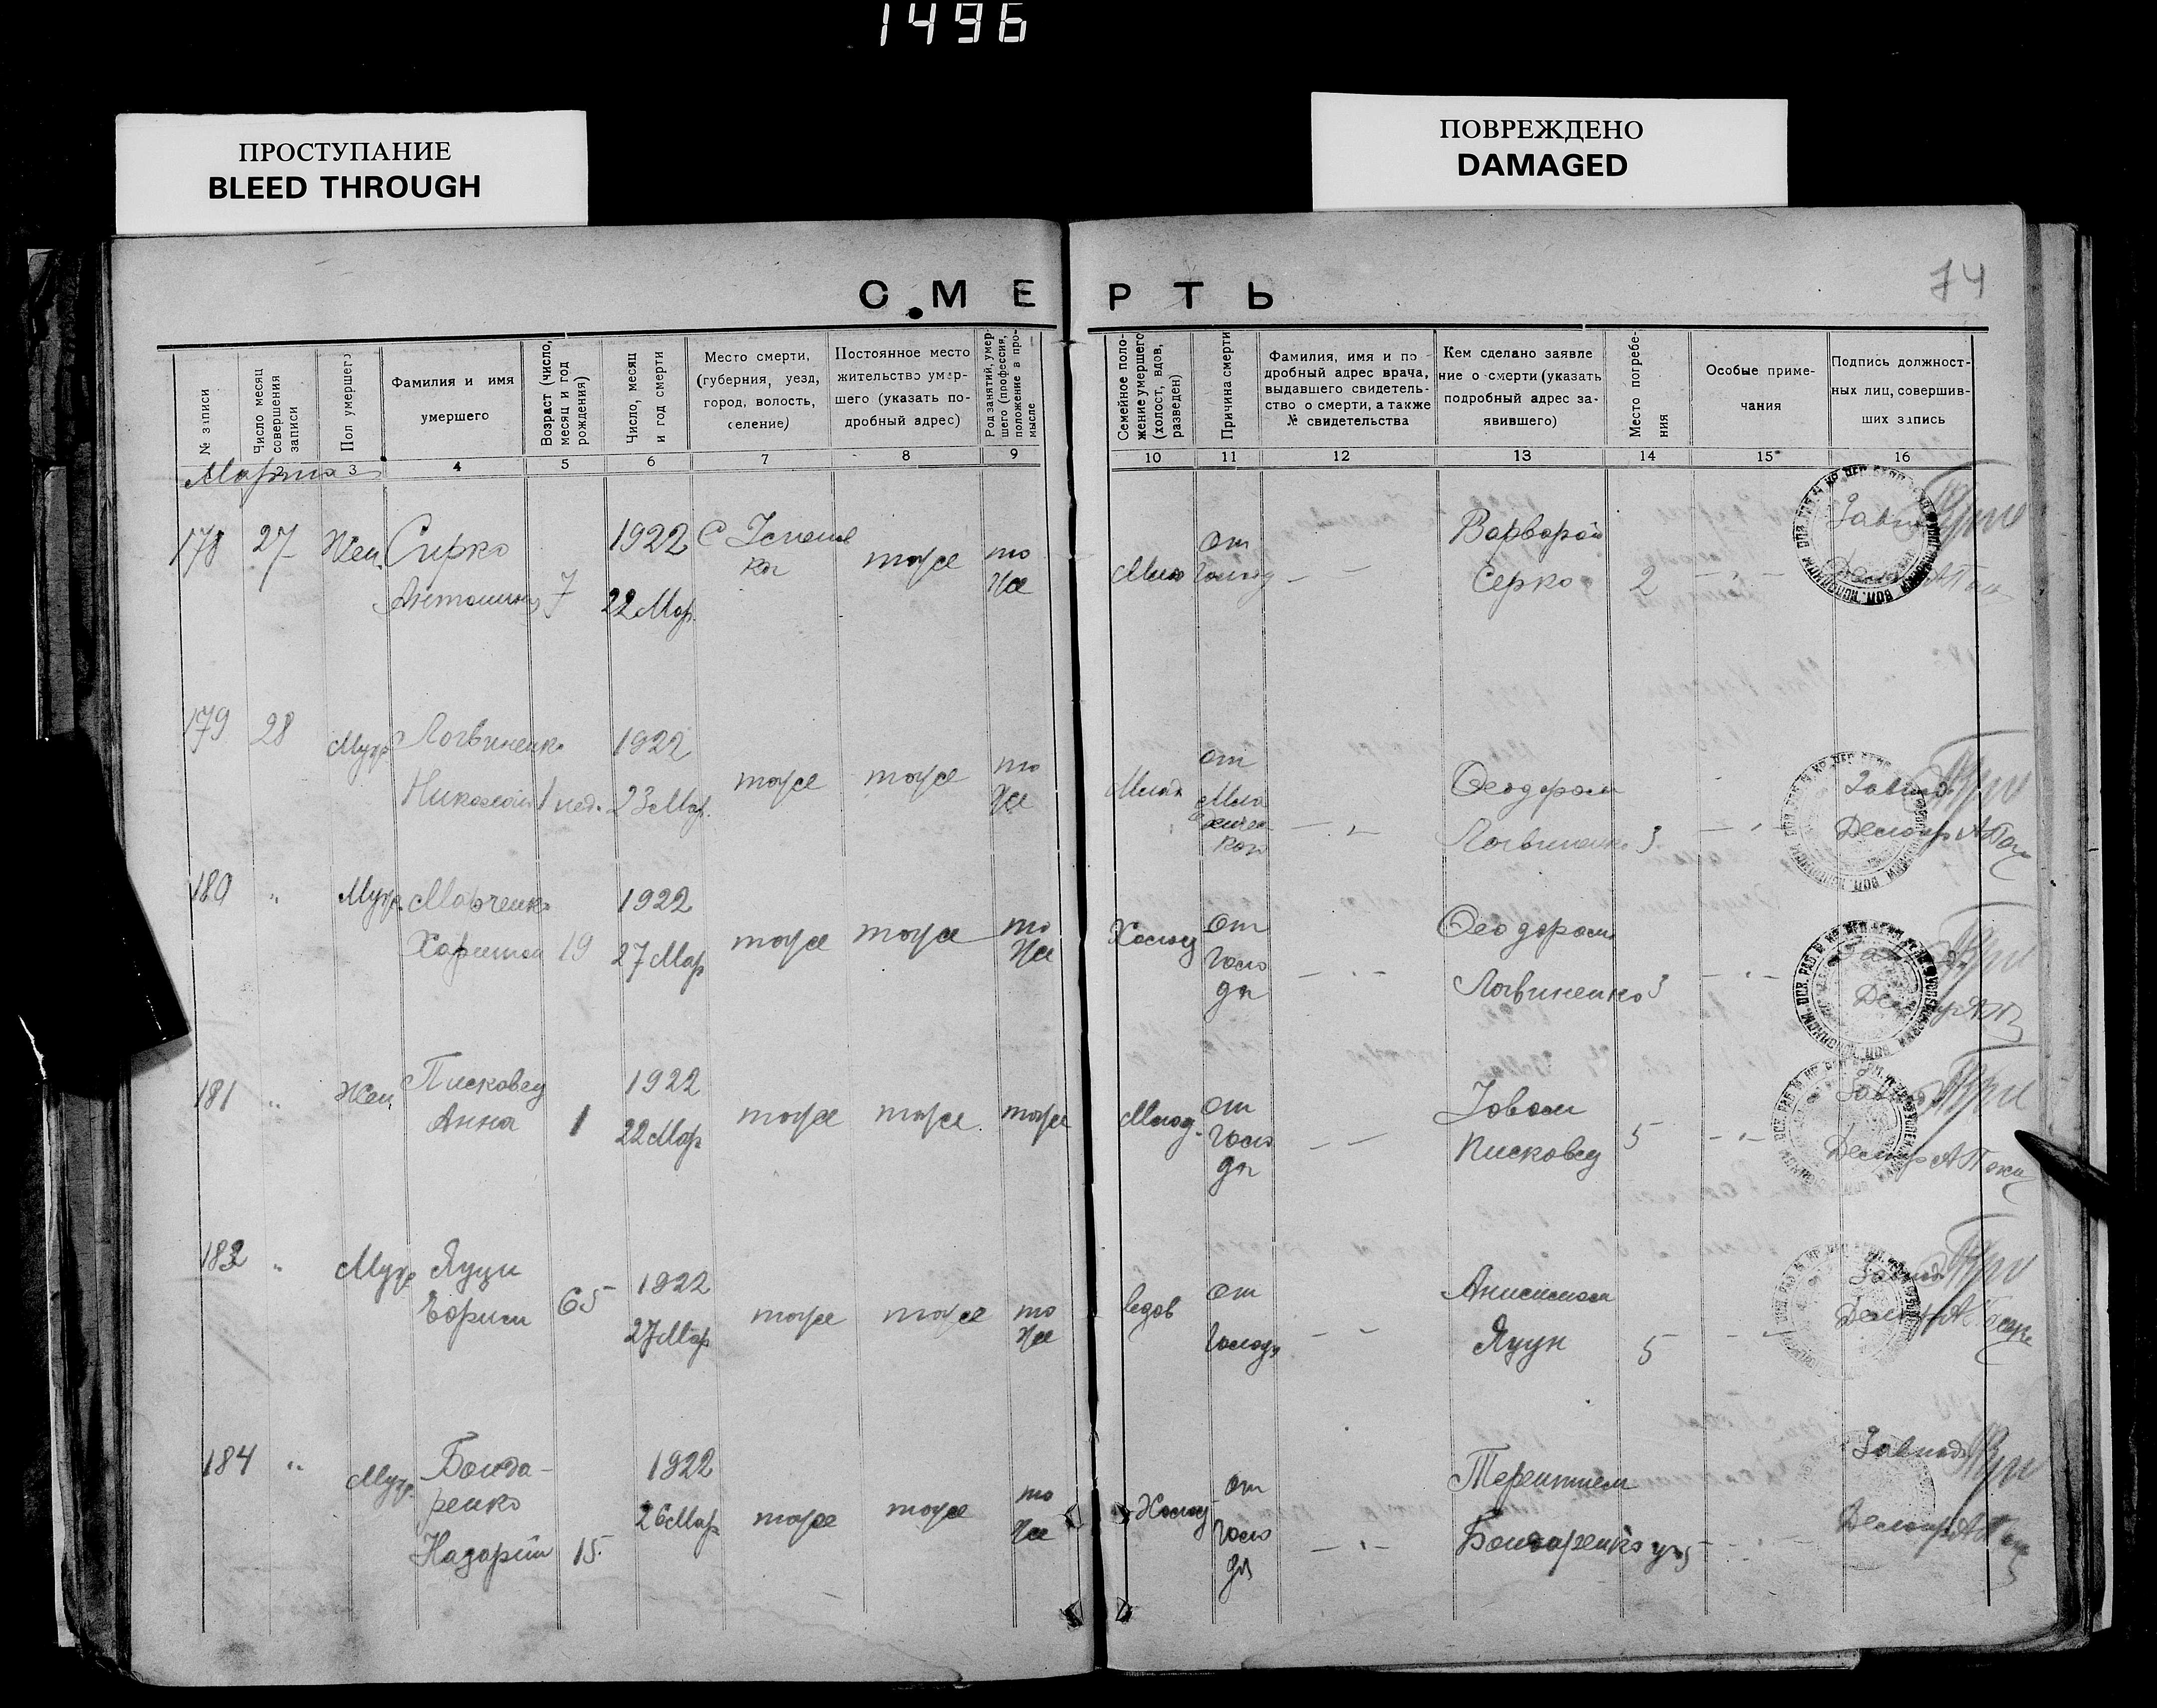 1496
ПРОСТУПАНИЕ
BLEED THROUGH
ПОВРЕЖДЕНО
DAMAGED
74
СМЕРТЬ
№ записи
Число месяц
совершения
записи
Пол умершего
Фамилия и имя
умершего
Возраст (число,
месяц и год
рождения)
Число, месяц
и год смерти
Место смерти,
(губерния, уезд,
город, волость,
селение)
Постоянное место
жительство умер-
шего (указать по-
дробный адрес)
Род занятий, умер-
шего (профессия,
положение в про-
мысле
Семейное поло-
жение умершего
(холост, вдов,
разведен)
Причина смерти
Фамилия, имя и по
дробный адрес врача,
выдавшего свидетель-
ство о смерти, а также
№ свидетельства
Кем сделано заявле
ние о смерти (указать
подробный адрес за-
явившего)
Место погребе-
ния
Особые приме-
чания
Подпись должност-
ных лиц, совершив-
ших запись
2 3 4 5 6 7 8 9 10 11 12 13 14 15 16
Марта
178 27 Жен. Сирко
Антонина 7
1922
22 Мар.
тоже
то
же
от
Варварой
Серко 2
179 28 Муж Логвиненко
Николай 1 нед.
1922
23 Мар.
тоже тоже
то
же
Млад
от
Феодором
Логвиненко 3
180 " Муж. Марченко
Харитон 19
1922
27 Мар
тоже тоже
то
же
Холост
от
голо
да
Феодором
Логвиненко 3
181 " Жен Писковец
Анна 1
1922
22 Мар
тоже тоже тоже
Млад.
от
голо
да
Іовом
Писковец 5
182 " Муж Яцун
Ефрим 65
1922
27 Мар
тоже тоже
то
же
вдов
от
голода
Анисимом
Яцун 5
184 " Муж. Бонда-
ренко
Назарий 15.
1922
26 Мар
тоже тоже
то
же
Холост
от
голо
да
Терентием
Бондаренко